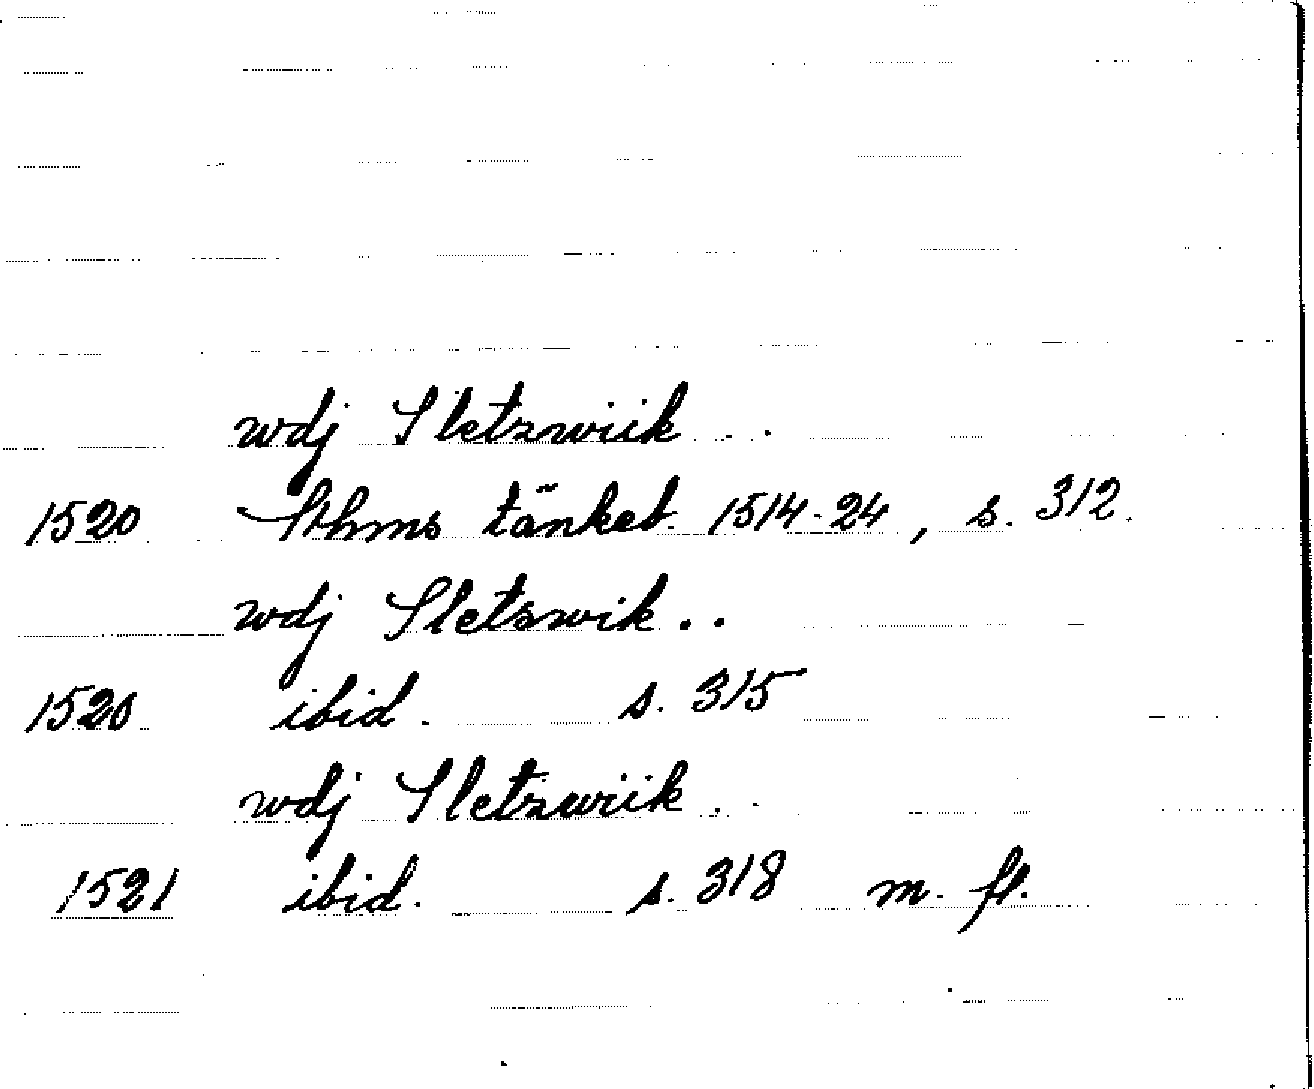 wdj Sletzwiik ..
1520 Sthms tänkeb. 1514-24, s. 312.
wdj Sletswik..
1520 ibid. s. 315
wdj Sletzwiik ..
1521 ibid. s. 318 m. fl.